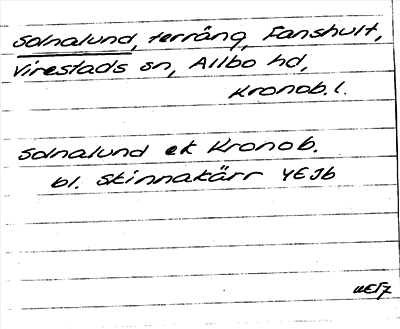 Solnalund, terräng, Fanshult,
Virestads sn, Allbo hd,
Kronob. l.
Solnalund ek Kronob.
bl. Skinnakärr YEJb